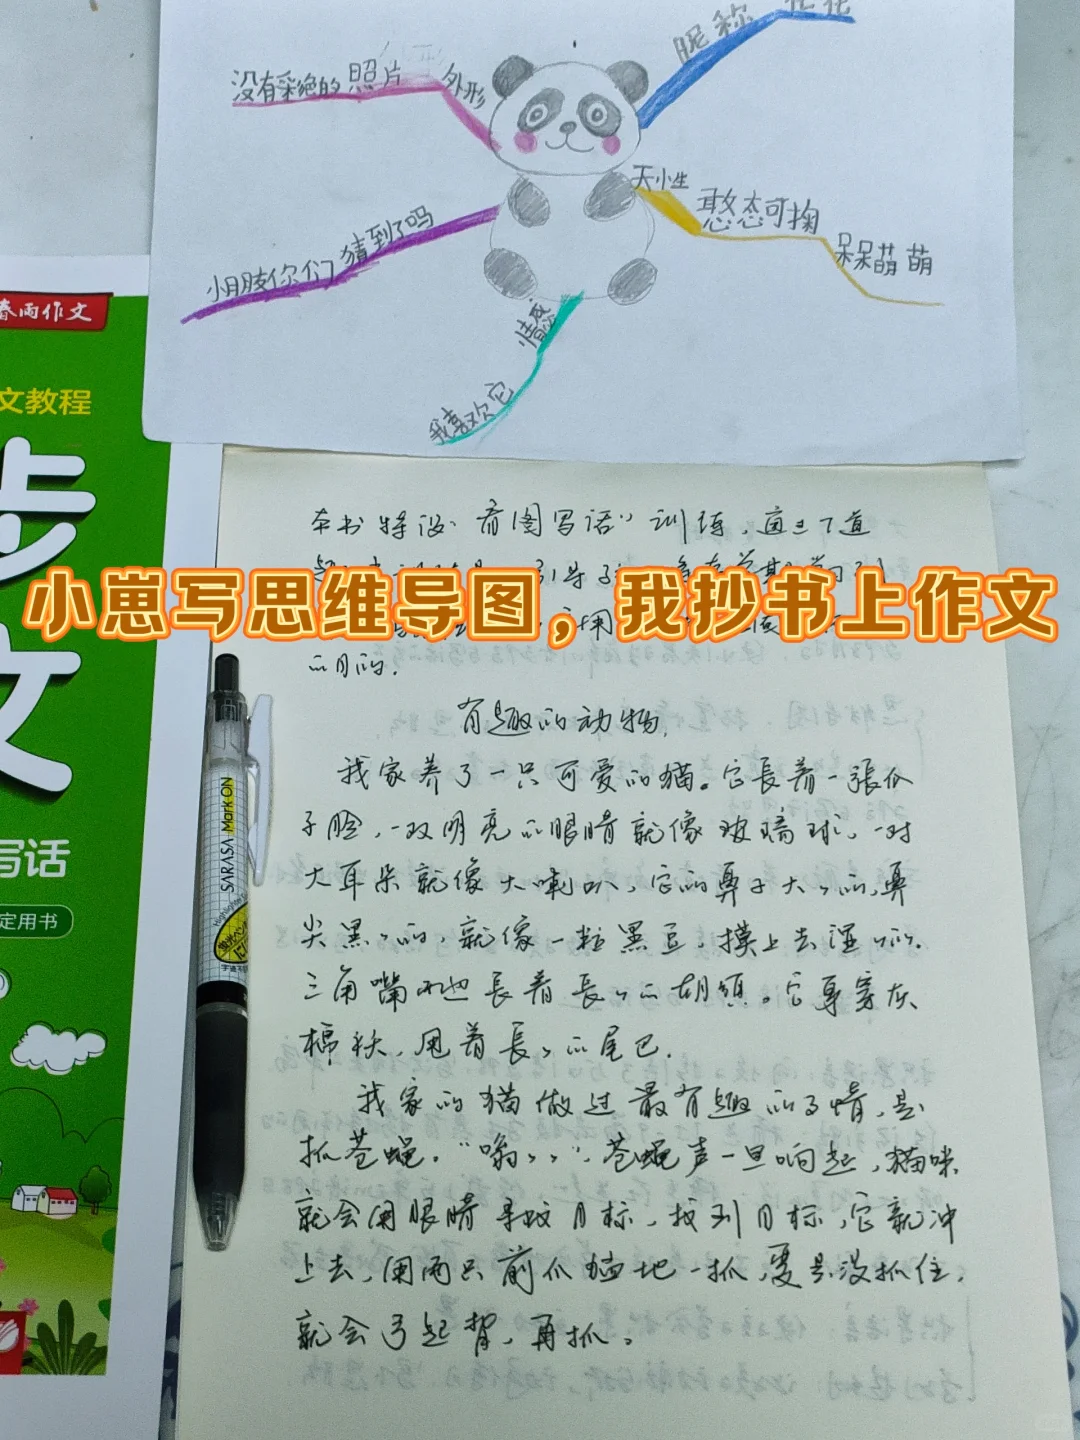 昵称
没有彩绝的照片
外形
天小生
憨态可掬
呆呆萌萌
小朋友你们猜到了吗
情感
我喜欢它
春雨作文
文教程
步
文
写话
定用书
SARASA Mark ON
小崽写思维导图，我抄书上作文
本书特设“看图写话”训练，通过7道
的目的.
有趣的动物.
我家养了一只可爱的猫。它長着一張瓜
子脸，一双明亮的眼睛就像玻璃球，一对
大耳朵就像大喇叭，它的鼻子大々的，鼻
尖黑々的，就像一粒黑豆，摸上去湿々的.
三角嘴两边長着長々的胡須。它身穿灰
棉袄，甩着長々的尾巴.
我家的猫做过最有趣的事情，是
抓苍蝇。“嗡々々”，苍蝇声一旦响起，猫咪
就会用眼睛寻找目标，找到目标，它就冲
上去，用两只前爪猛地一抓，要是没抓住，
就会弓起背，再抓。